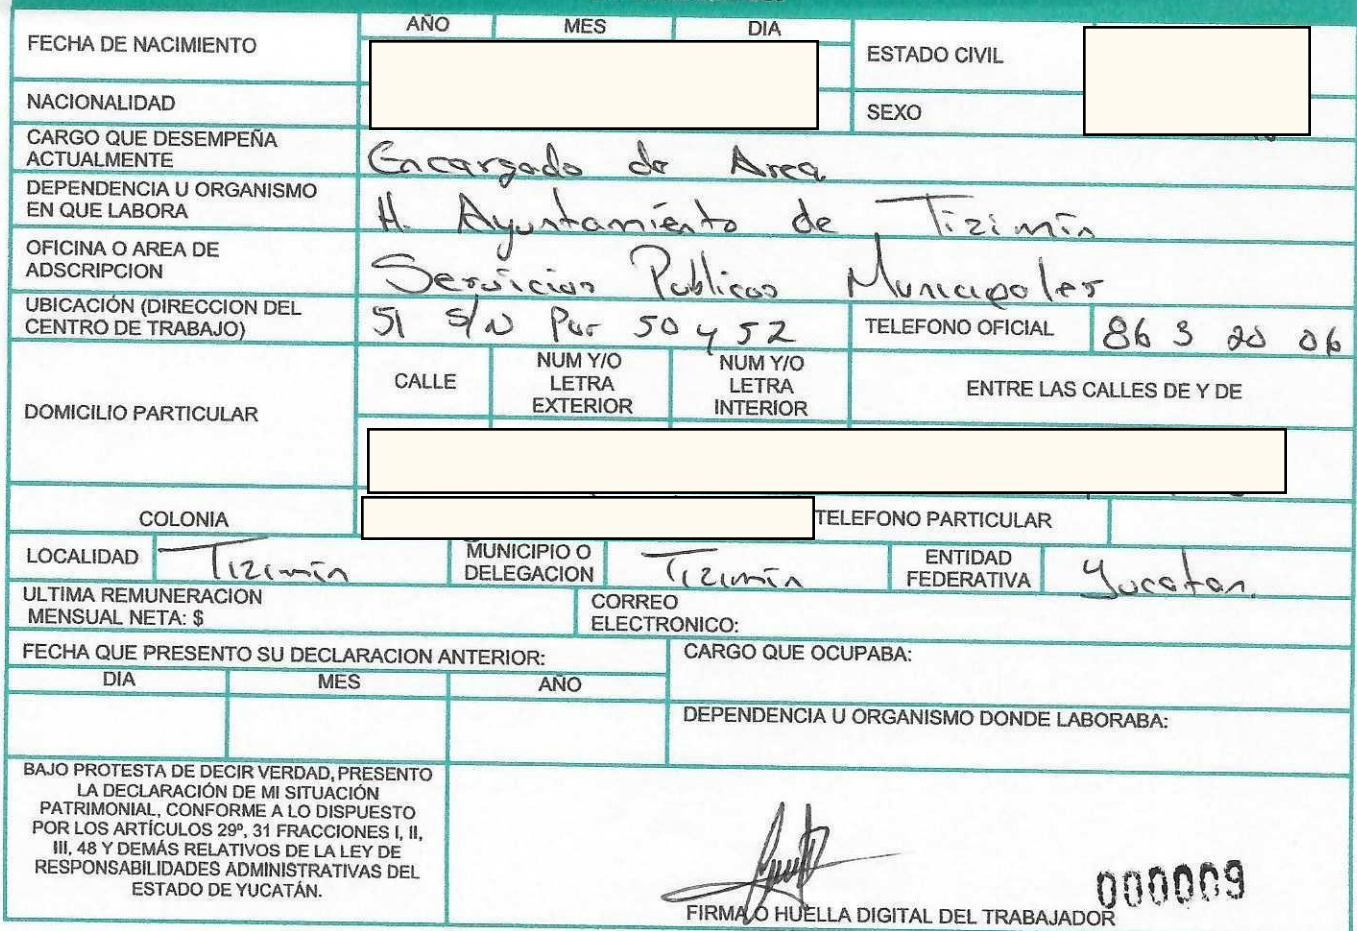 AÑO MES DIA
FECHA DE NACIMIENTO
ESTADO CIVIL
NACIONALIDAD
SEXO
CARGO QUE DESEMPEÑA
ACTUALMENTE
Encargado de Area
DEPENDENCIA U ORGANISMO
EN QUE LABORA
H. Ayuntamiento de Tizimín
OFICINA O AREA DE
ADSCRIPCION
Servicios Publicos Municipales
UBICACIÓN (DIRECCION DEL
CENTRO DE TRABAJO)
51 S/N Por 50 y 52
TELEFONO OFICIAL
86 3 20 06
DOMICILIO PARTICULAR
CALLE
NUM Y/O
LETRA
EXTERIOR
NUM Y/O
LETRA
INTERIOR
ENTRE LAS CALLES DE Y DE
COLONIA
TELEFONO PARTICULAR
LOCALIDAD
Tizimín
MUNICIPIO O
DELEGACION
Tizimín
ENTIDAD
FEDERATIVA
Yucatan.
ULTIMA REMUNERACION
MENSUAL NETA: $
CORREO
ELECTRONICO:
FECHA QUE PRESENTO SU DECLARACION ANTERIOR:
DIA MES AÑO
CARGO QUE OCUPABA:
DEPENDENCIA U ORGANISMO DONDE LABORABA:
BAJO PROTESTA DE DECIR VERDAD, PRESENTO
LA DECLARACIÓN DE MI SITUACIÓN
PATRIMONIAL, CONFORME A LO DISPUESTO
POR LOS ARTÍCULOS 29º, 31 FRACCIONES I, II,
III, 48 Y DEMÁS RELATIVOS DE LA LEY DE
RESPONSABILIDADES ADMINISTRATIVAS DEL
ESTADO DE YUCATÁN.
FIRMA O HUELLA DIGITAL DEL TRABAJADOR
000009